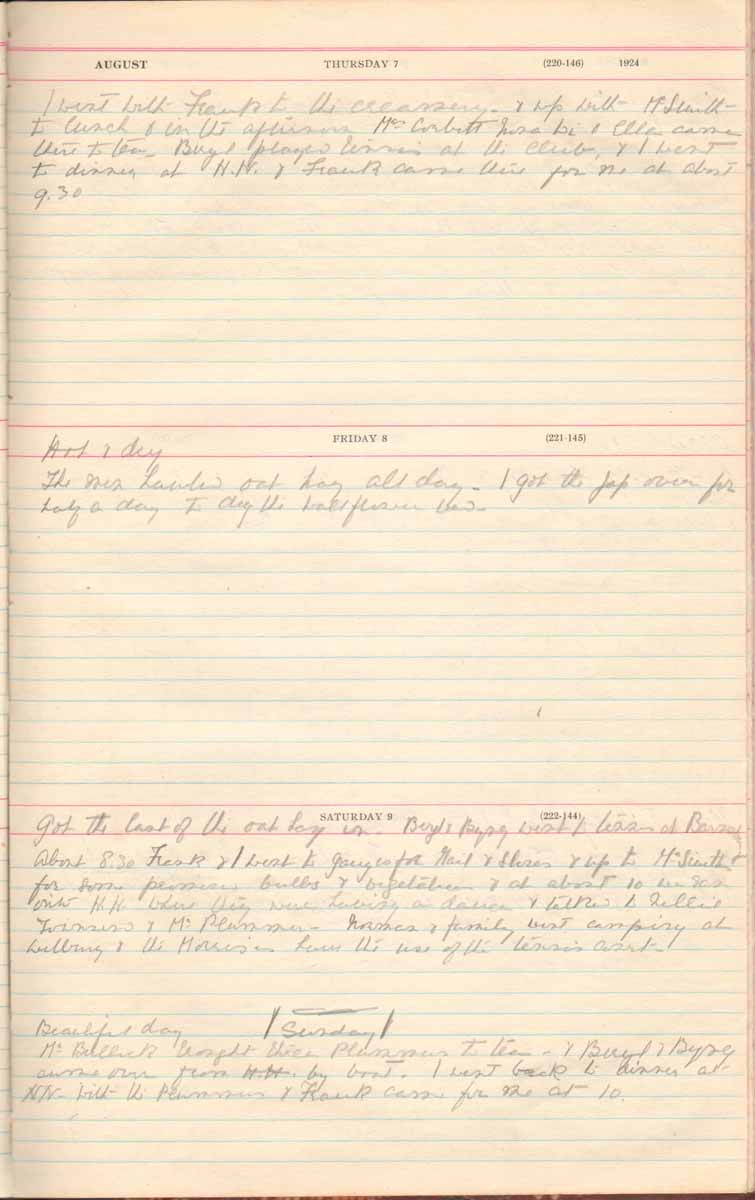 AUGUST THURSDAY 7 (220-146) 1924
I went with Frank to the creamery. & up with Mc Smith
to lunch & in the afternoon Mrs Corbett Nora Di & Ella came
there to tea. Beryl played tennis at the Club, & I went
to dinner at H.H. & Frank came there for me at about
9.30
FRIDAY 8 (221-145)
Hot & dry
The men hauled oat hay all day. I got the Jap over for
half a day to dig the wallflower bed.
SATURDAY 9 (222-144)
Got the last of the oat hay in. Beryl & Byng went to tennis at
About 8.30 Frank & I went to Ganges for Mail & Stores & up to Mc Smith
for some bulbs & vegetables & at about 10 we
H.H. where they were having a dance & talked to Nellie
& Mr Plummer. Norman & family went camping at
Welbury & the Morris's have the use of the tennis court.
Beautiful day | Sunday |
Mr Bullock brought Plummers to tea. & Beryl & Byng
came over from H.H. by boat. I went back to dinner at
H.H. with the Plummers & Frank came for me at 10.